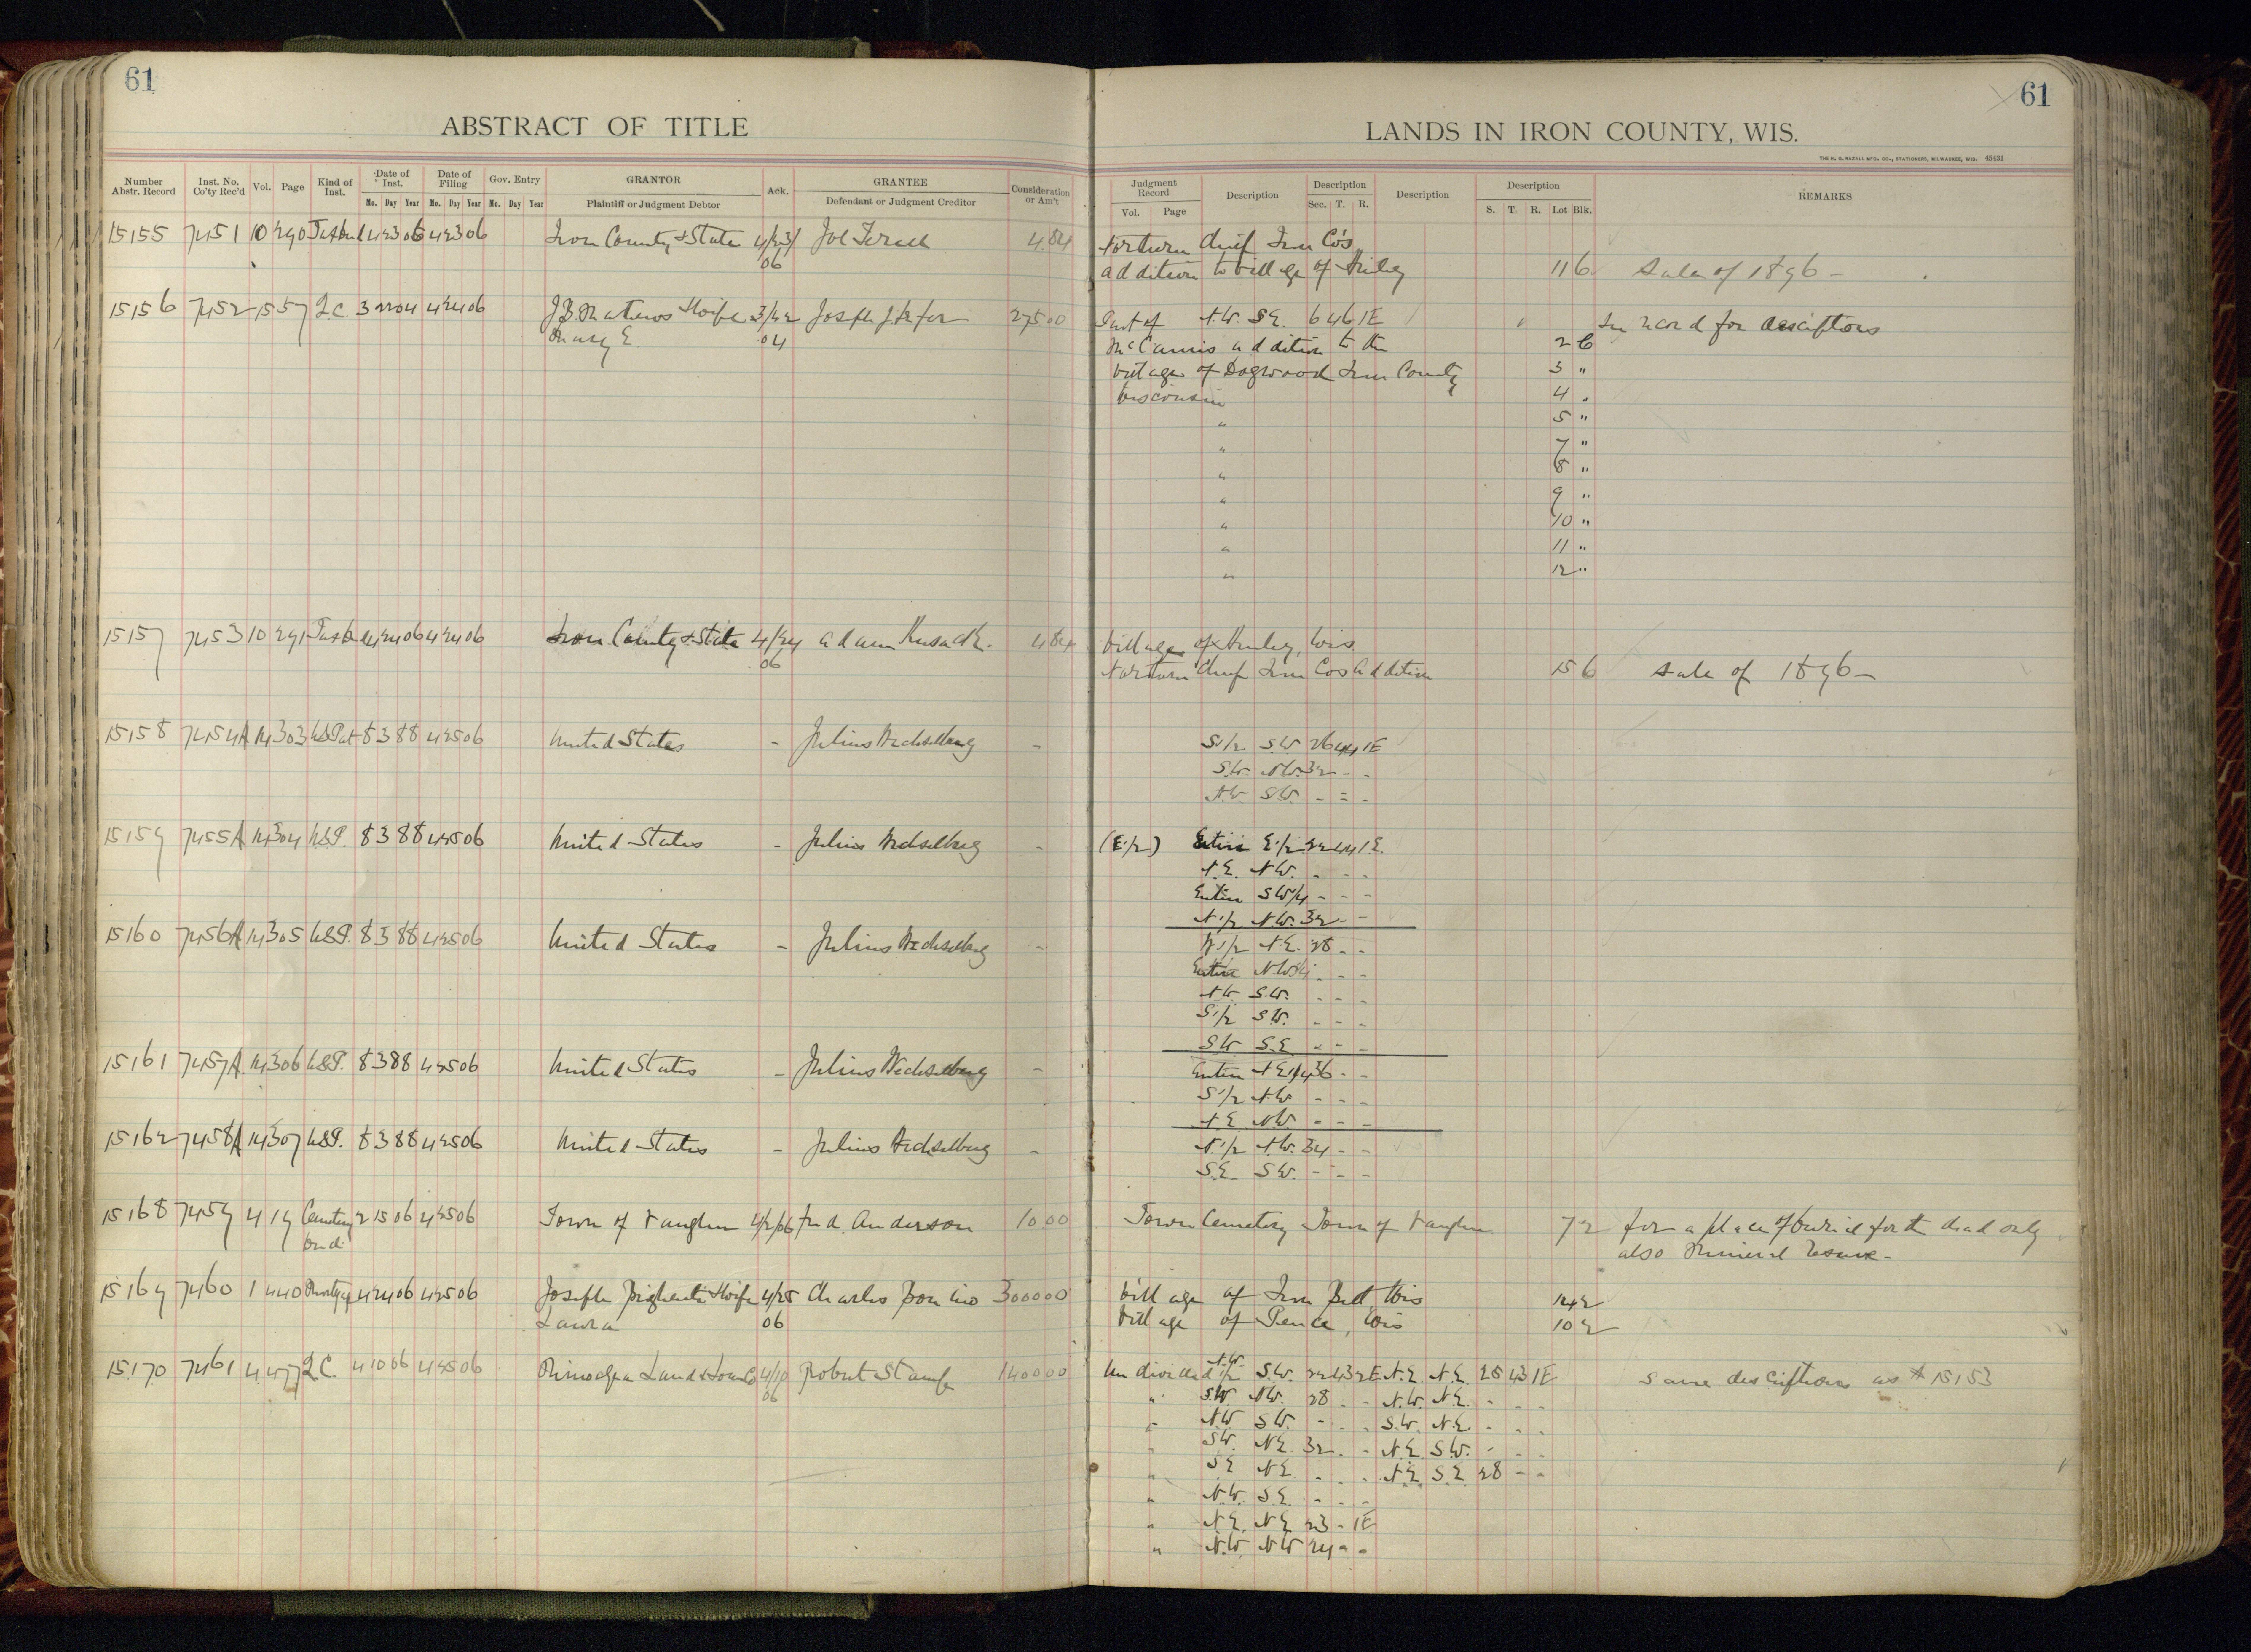 61
ABSTRACT OF TITLE
Number Abstr. Record | Inst. No. Co'ty Rec'd | Vol. | Page | Kind of Inst. | Date of Inst. Mo. Day Year | Date of Filing Mo. Day Year | Gov. Entry Mo. Day Year | GRANTOR Plaintiff or Judgment Debtor | Ack. | GRANTEE Defendant or Judgment Creditor | Consideration or Am't
15155 7451 10 290 4 23 06 4 23 06 Iron County & State 4/23/ Joe 4.84
06
15156 7452 15 57 Q.C. 3 22 04 4 24 06 J.B. Mathews & wife 3/22 Joseph 275.00
Mary E. 04
15157 7453 10 291 4 24 06 4 24 06 Iron County & State 4/24 Adam 4.84
06
15158 7454A 14 303 U.S. Pat 8 3 88 4 25 06 United States - Julius Wechselberg -
15159 7455A 14 304 U.S.P. 8 3 88 4 25 06 United States - Julius Wechselberg -
15160 7456A 14 305 U.S.P. 8 3 88 4 25 06 United States - Julius Wechselberg -
15161 7457A 14 306 U.S.P. 8 3 88 4 25 06 United States - Julius Wechselberg -
15162 7458A 14 307 U.S.P. 8 3 88 4 25 06 United States - Julius Wechselberg -
15168 7459 4 19 Cemetery 2 15 06 4 25 06 Town of Vaughn Anderson 10.00
15169 7460 1 440 Mortgage 4 24 06 4 25 06 Joseph & wife 4/25 Charles 3000.00
Laura 06
15170 7461 4 457 Q.C. 4 10 06 4 25 06 Land & 4/10 Robert 1400.00
06
61
LANDS IN IRON COUNTY, WIS.
THE H. G. RAZALL MFG. CO., STATIONERS, MILWAUKEE, WIS. 45431
Judgment Record Vol. Page | Description | Description Sec. T. R. | Description | Description S. T. R. Lot Blk. | REMARKS
Northern Chief Iron Co's
addition to village of Hurley 11 6 Sale of 1896 -
Part of N.W. S.E. 6 46 1E See record for descriptions
addition to the 2 6
village of Dogwood Iron County 3 "
Wisconsin 4 "
" 5 "
" 7 "
" 8 "
" 9 "
" 10 "
" 11 "
" 12 "
Village of Hurley, Wis.
Northern Chief Iron Cos addition 15 6 Sale of 1896 -
S 1/2 S.W. 26 44 1E
S.W. N.W. 32 - -
N.W. S.W. - - -
(E 1/2) Entire E 1/2 22 44 1E
N.E. N.W. - - -
Entire S.W 1/4 - - -
N 1/2 N.W. 32 - -
W 1/2 N.E. 28 - -
Entire N.W 1/4 - - -
N.W. S.W. - - -
S 1/2 S.W. - - -
S.W. S.E. - - -
Entire N.E 1/4 36 - -
S 1/2 N.W. - - -
N.E. N.W. - - -
N 1/2 N.W. 34 - -
S.E. S.W. - - -
Town Cemetery Town of Vaughn 72 for a place of burial for the dead only
also Mineral Reserve -
Village of Iron Belt, Wis
Village of Pence, Wis 10 2
N.W.
Undivided 1/2 S.W. 22 43 2E N.E. N.E. 25 43 1E Same descriptions as # 15153
" S.W. N.W. 28 - - N.W. N.E. - - -
" N.W. S.W. - - - S.W. N.E. - - -
" S.W. N.E. 32 - - N.E. S.W. - - -
" S.E. N.E. - - - N.E. S.E. 28 - -
" N.W. S.E. - - -
" N.E. N.E. 23 - 1E
" N.W. N.W. 24 - -